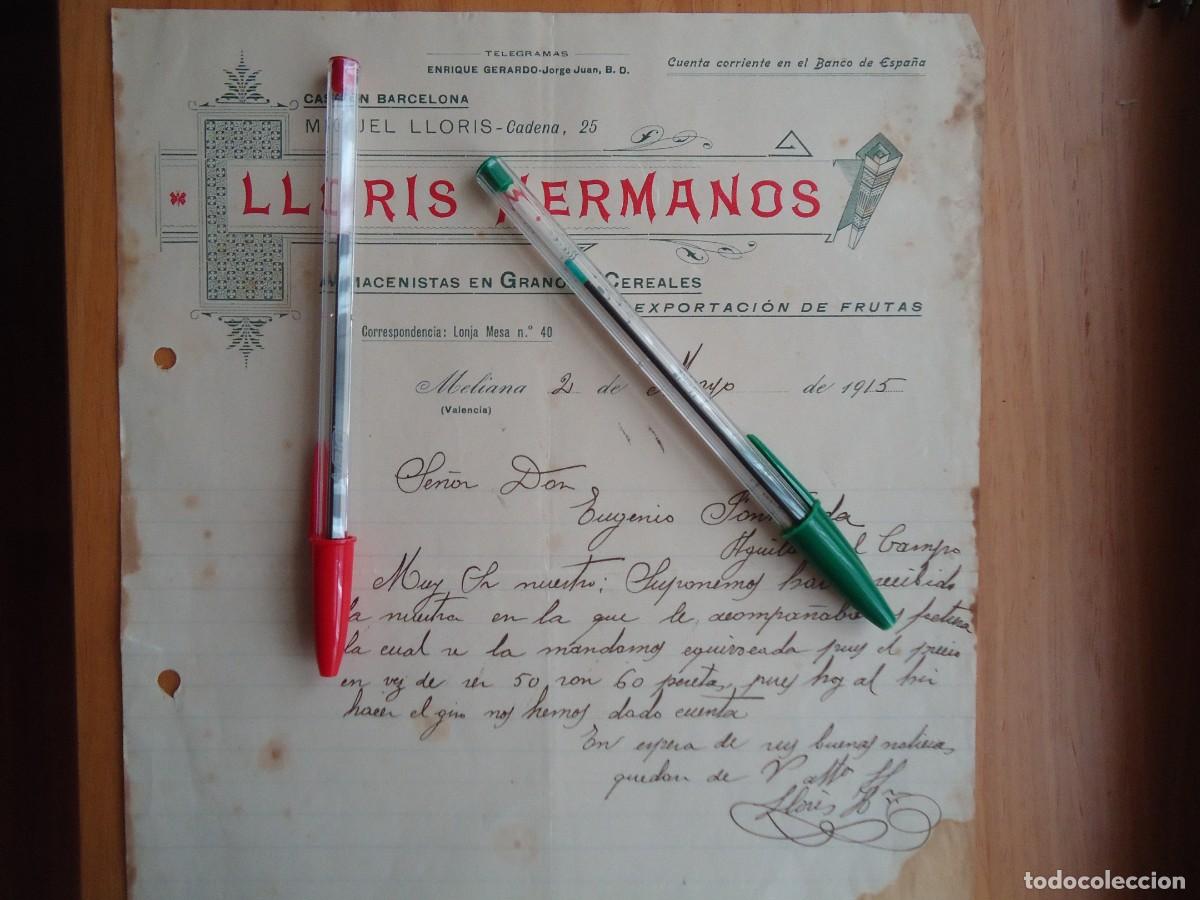 TELEGRAMAS
ENRIQUE GERARDO-Jorge Juan, B. D.
Cuenta corriente en el Banco de España
EN BARCELONA
LLORIS-Cadena, 25
LLORIS HERMANOS
EN GRANO CEREALES
EXPORTACIÓN DE FRUTAS
Correspondencia: Lonja Mesa n.º 40
Meliana 2 de Mayo de 1915
(Valencia)
Señor Don
Eugenio
Campo
Muy Sr nuestro: Suponemos recibido
la nuestra en la que le
la cual se la mandamos equivocada pues el precio
en vez de ser 50 son 60 pesetas, pues hoy al
hacer el giro nos hemos dado cuenta
En espera de sus buenas noticias
quedan de V
Lloris
todocoleccion